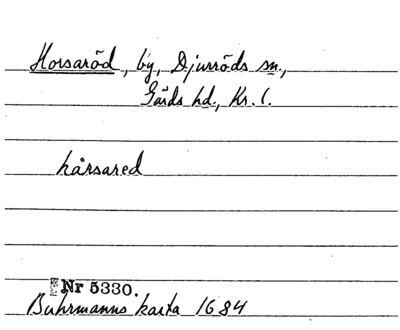 Horsaröd, by, Djurröds sn.,
Gärds hd., Kr. l.
hårsared
Nr 5330.
Buhrmanns karta 1684